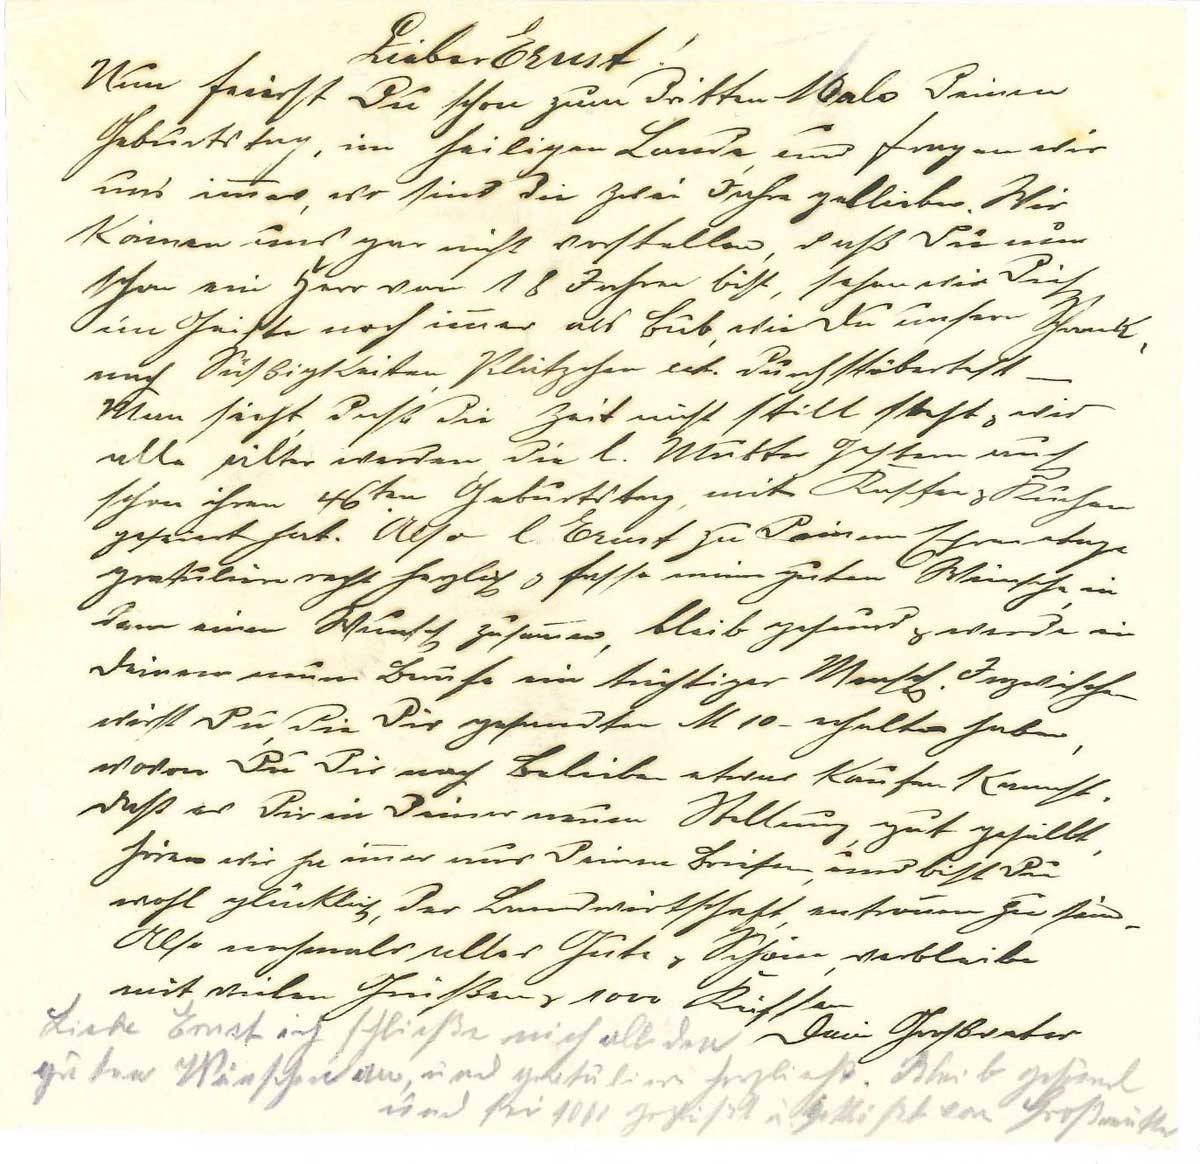 Lieber Ernst!
Nun feierst Du schon zum dritten Male Deinen
Geburtstag, im heiligen Lande, und fragen wir
uns immer, wo sind die zwei Jahre geblieben. Wir
können uns gar nicht vorstellen, daß Du nun
schon ein Herr von 18 Jahren bist, sehen wir Dich
im Geiste noch immer als Bub, wie Du unsern Schrank,
nach Süßigkeiten, Plätzchen ect. durchstöbertest —
Man sieht, daß die Zeit nicht still steht & wir
alle älter werden, die l. Mutter gestern auch
schon ihren 46ten Geburtstag, mit Kaffee & Kuchen
gefeiert hat. Also l. Ernst zu Deinem Ehrentage
gratuliere recht herzlich & fasse meine guten Wünsche, in
dem einen Wunsch zusammen, bleib gesund & werde in
Deinem neuen Berufe ein tüchtiger Mensch. Inzwischen
wirst Du, die Dir gesandten M 10 – erhalten haben,
wovon Du Dir nach Belieben etwas kaufen kannst.
daß es Dir in Deiner neuen Stellung, gut gefällt,
hören wir ja immer aus Deinen Briefen, und bist Du
wohl glücklich, der Landwirtschaft, entronnen zu sein.
Also nochmals alles Gute & Schöne, verbleibe
mit vielen Grüßen & 1000 Küssen
Dein Großvater
Liebe Ernst ich schließe mich all den
guten Wünschen an, und gratuliere herzlichst. Bleib gesund
und sei 1000 gegrüßt u geküßt von Großmutter